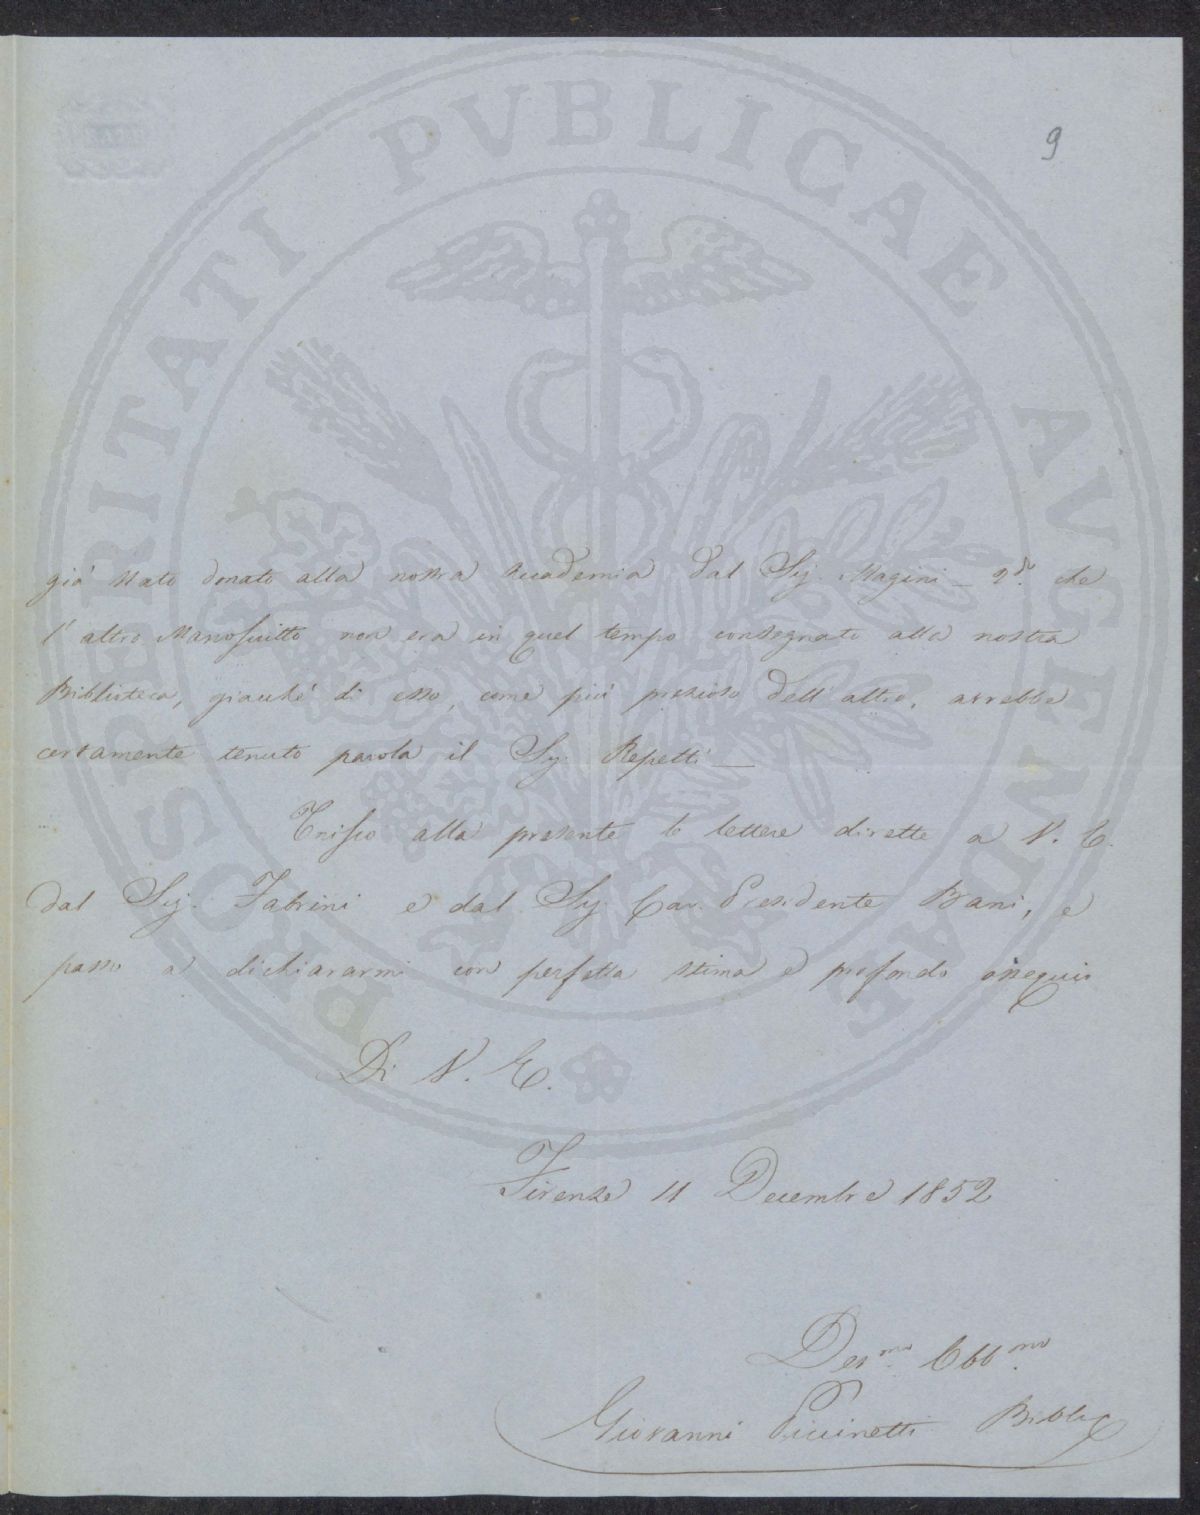 9
già stato donato alla nostra Accademia dal Sig. Magini – 2° che
l'altro Manoscritto non era in quel tempo consegnato alla nostra
Biblioteca, giacché di esso, come più prezioso dell'altro, avrebbe
certamente tenuto parola il Sig. Repetti –
Unisco alla presente le lettere dirette a V. E.
dal Sig. Fabrini e dal Sig. Cav. Presidente Bani, e
passo a dichiararmi con perfetta stima e profondo ossequio
Di V. E.
Firenze 11 Decembre 1852
Dev.mo Obb.mo
Giovanni Piccinetti Bibl.
PROSPERITATI PVBLICAE AVGENDAE